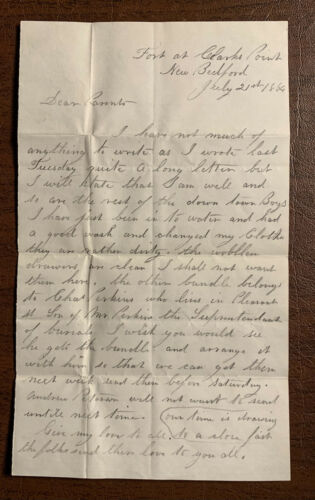 Fort at Clarks Point
New Bedford
July 21st 1864
Dear Parents
I have not much of
anything to write as I wrote last
Tuesday quite a long letter but
I will state that I am well and
so are the rest of the down town Boys
I have just been in to water and had
a good wash and changed my Cloths
they are rather dirty. the
drawers are clean I shall not want
them here. the other bundle belongs
to Chas Perkins who lives in Pleasant
st Son of Mr Perkins the Superntendant
of burials I wish you would see
he gets the bundle and arrange it
with him so that we can get them
next week send them before Saturday.
Andrew will not want to send
untill next time. our time is drawing
to a close fast
Give my love to all.
the folks send there love to you all.